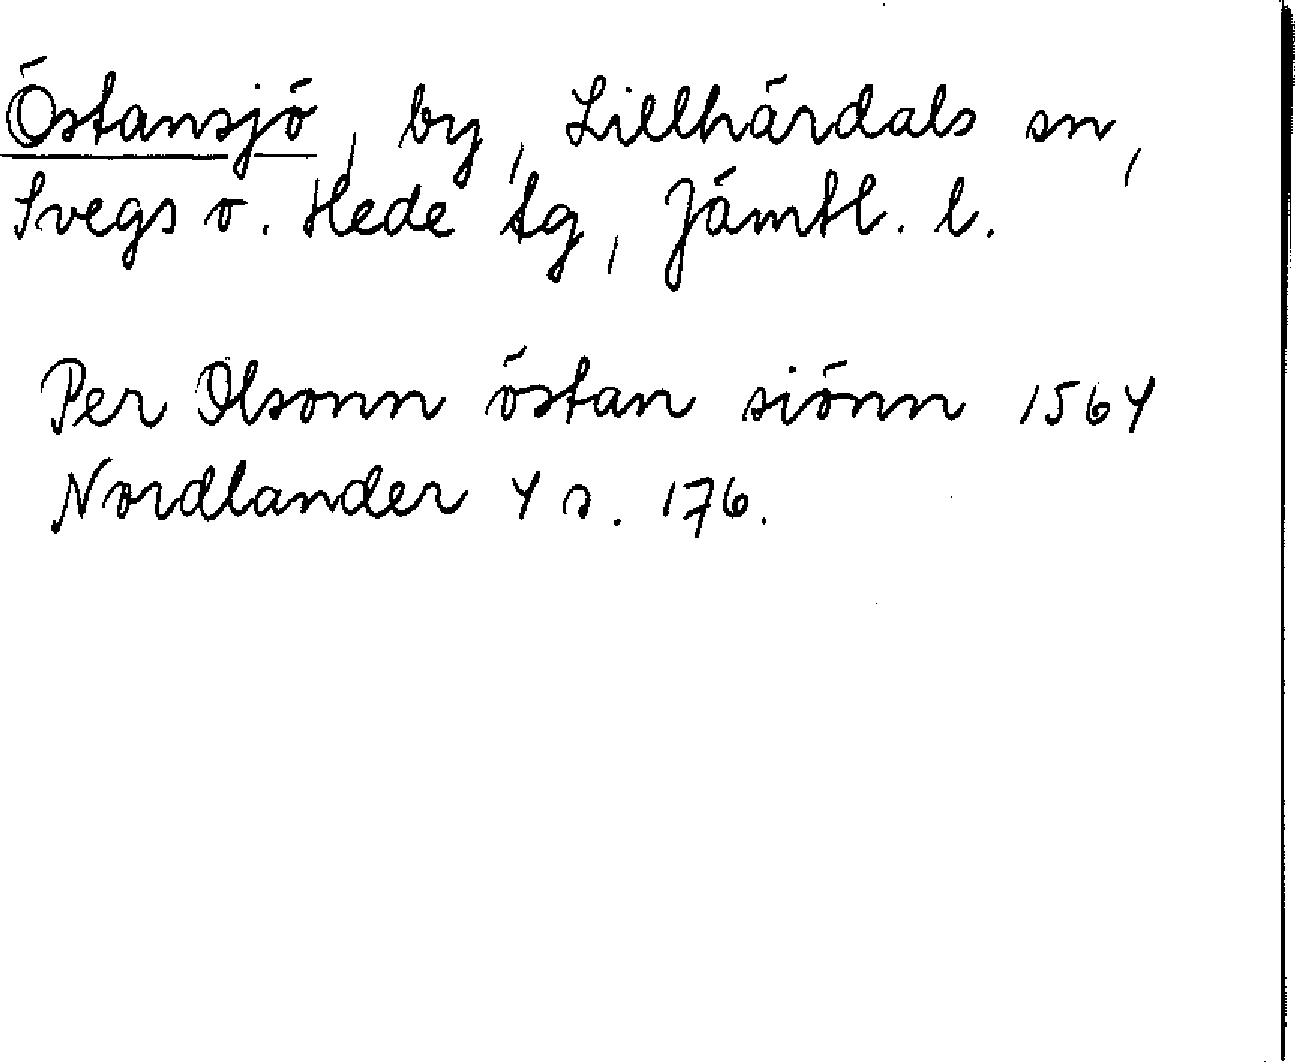 Östansjö, by, Lillhärdals sn,
Svegs o. Hede tg, Jämtl. l.
Per Olsonn östan siönn 1564
Nordlander 4 s. 176.